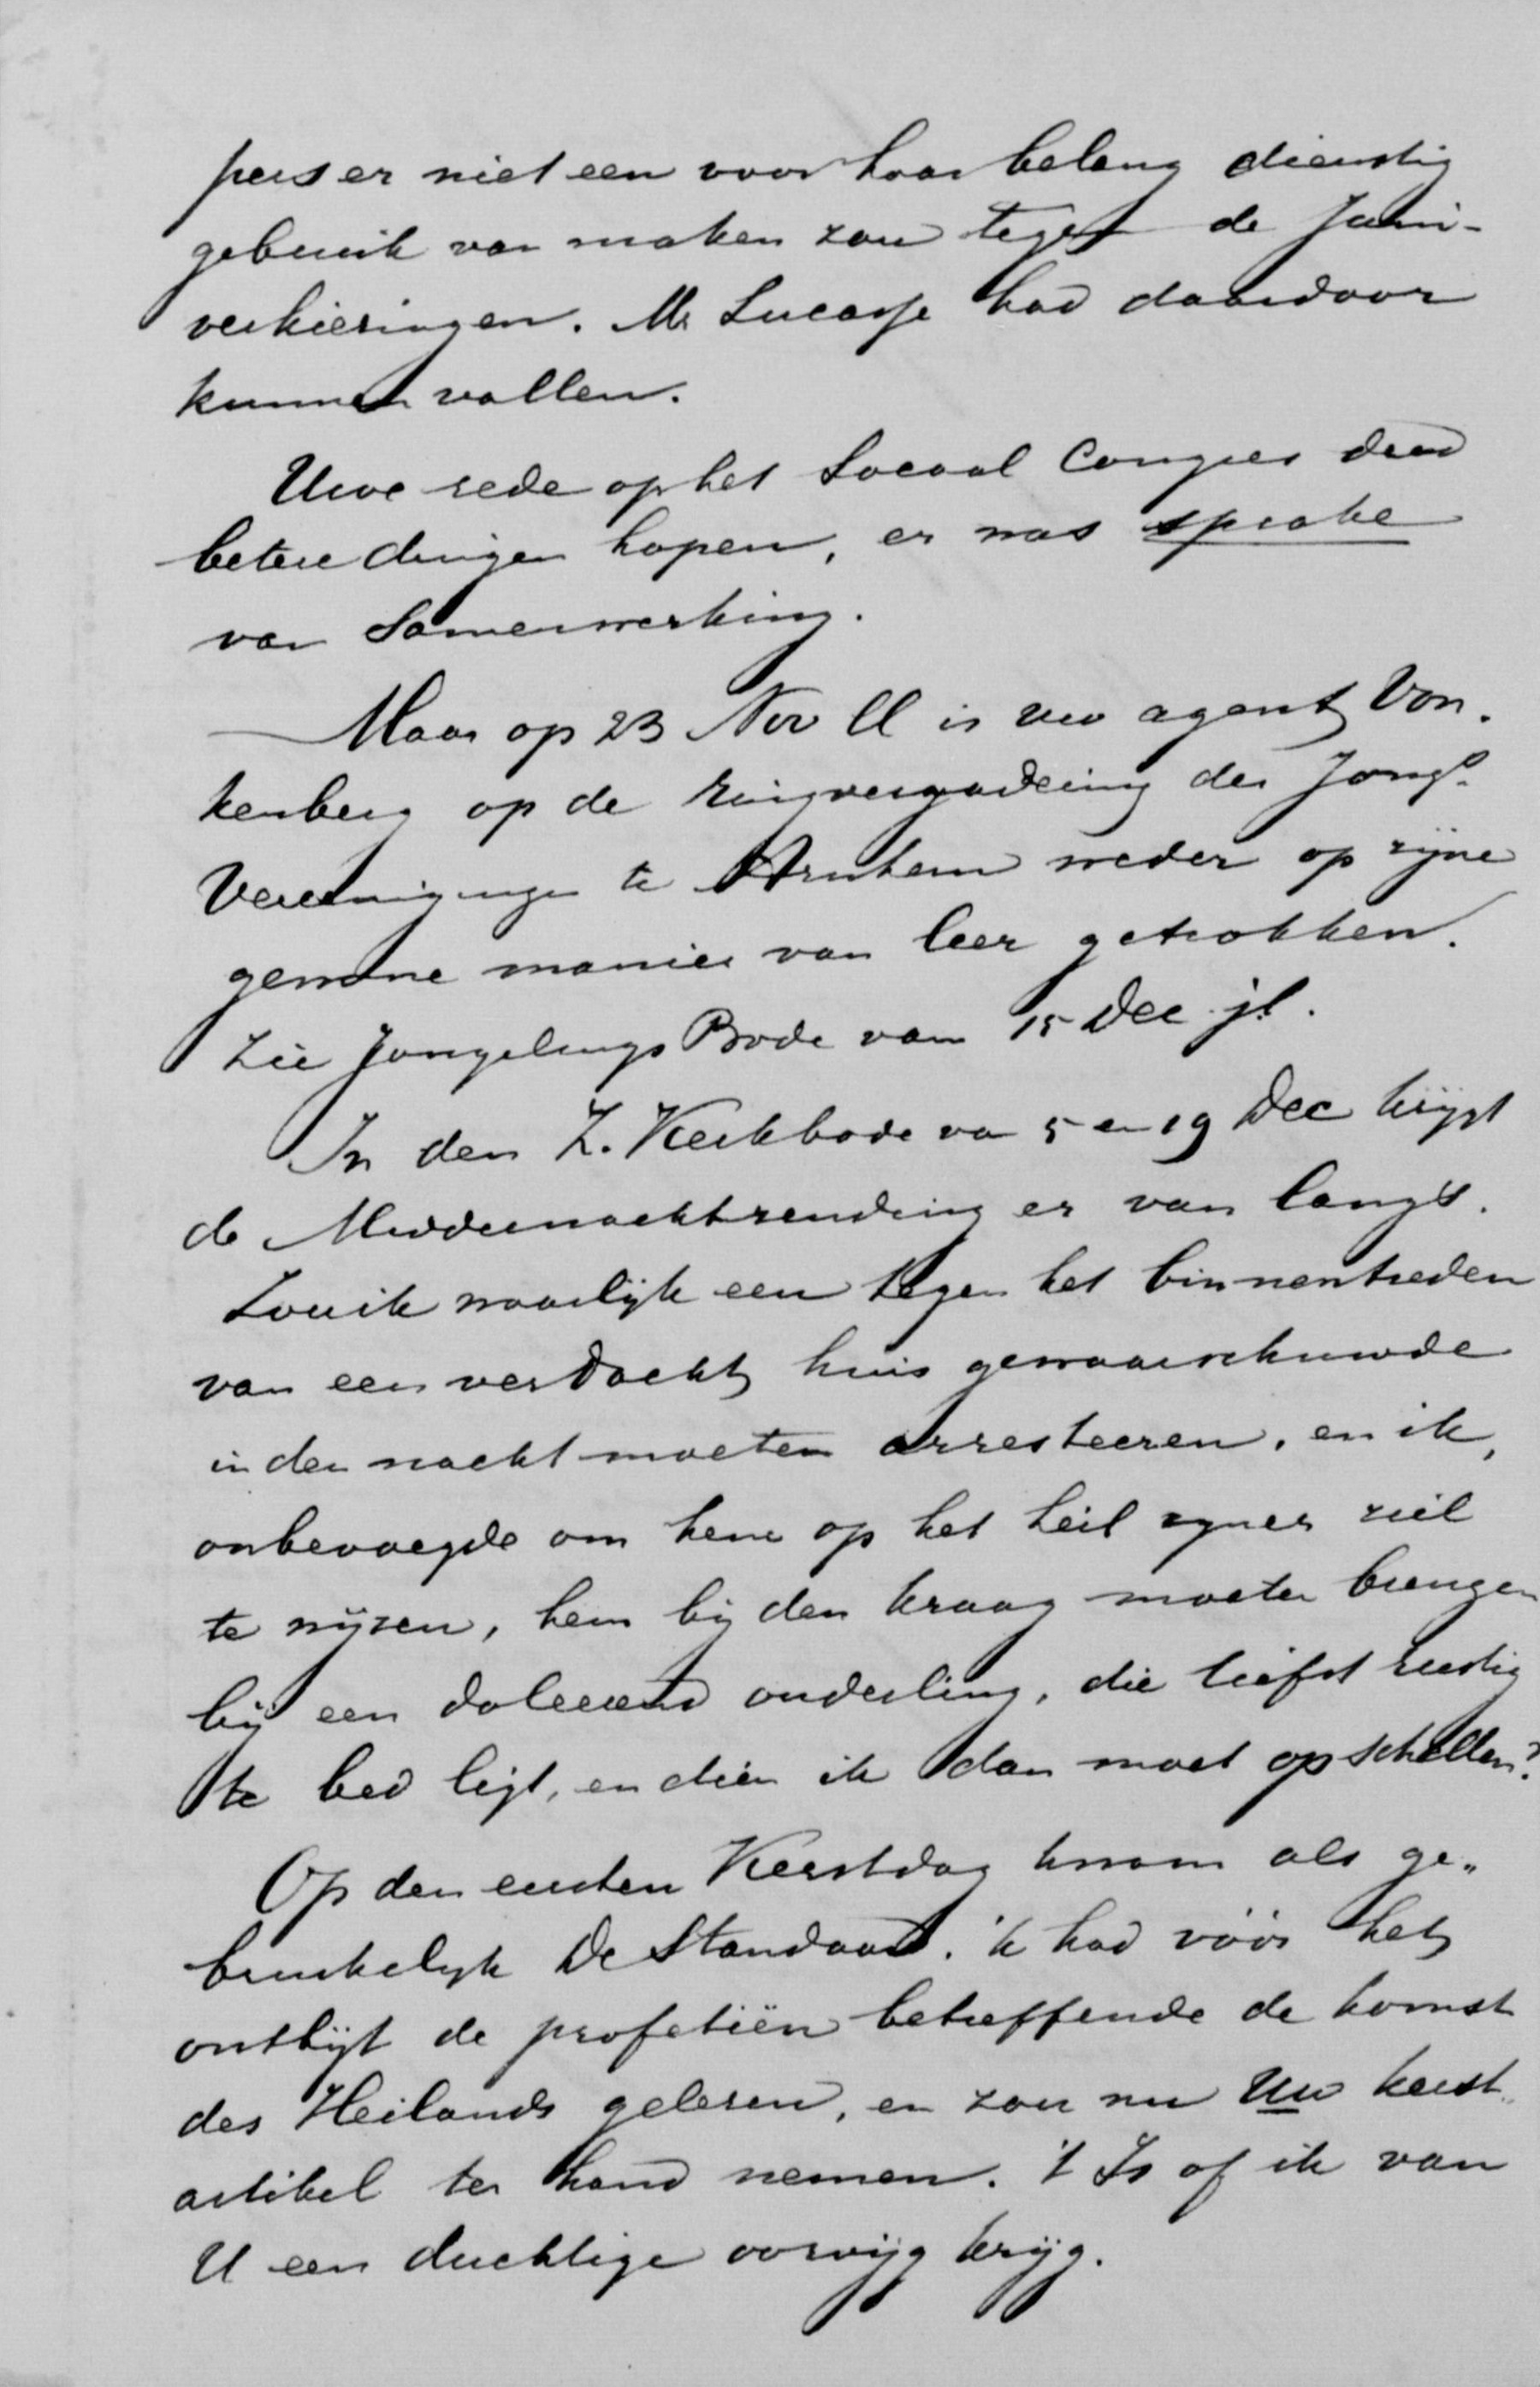 pers er niet een voor haar belang dienstig
gebruik van maken zou tegen de Juni-
verkiezingen. Mr Lucasse had daardoor
kunnen vallen.
Uwe rede op het Sociaal Congres deed
betere dingen hopen, er was sprake
van Samenwerking.
Maar op 23 Nov ll is uw agent Von.
kenberg op de Ringvergadering der Jongs.
Vereenigingen te Arnhem weder op zijne
gewone manier van leer getrokken.
Zie Jongelings Bode van 15 Dec jl.
In den Z. Kerkbode van 5 en 19 Dec krijgt
de Middernachtzending er van langs.
Zou ik waarlijk een tegen het binnentreden
van een verdacht huis gewaarschuwde
in den nacht moeten arresteeren, en ik,
onbevoegde om hem op het heil zijner ziel
te wijzen, hem bij den kraag moeten brengen
bij een doleerend ouderling, die liefst rustig
te bed ligt, en dien ik dan moet opschellen?
Op den eersten Kerstdag kwam als ge„
bruikelijk De Standaard. 'k had vóór het
ontbijt de profetiën betreffende de komst
des Heilands gelezen, en zou nu Uw kerst„
artikel ter hand nemen. 't Is of ik van
U een duchtige oorvijg krijg.